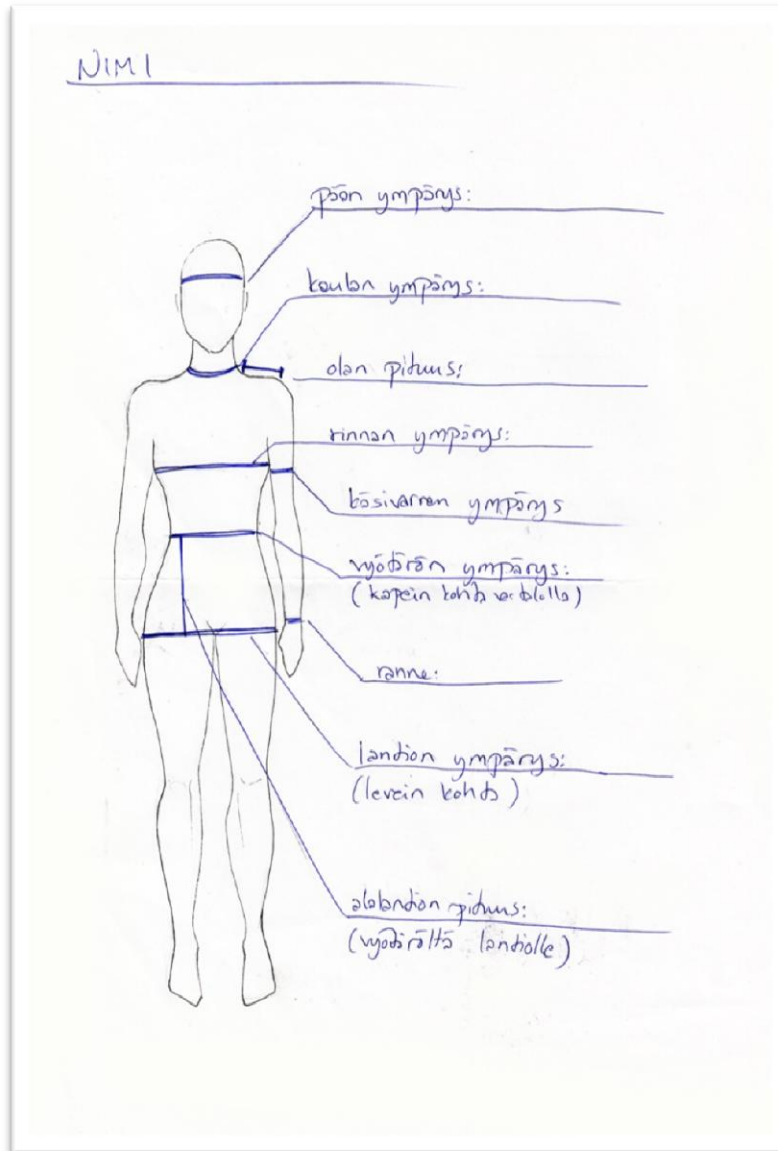 NIMI
pään ympärys:
kaulan ympärys:
olan pituus:
rinnan ympärys:
käsivarren ympärys
vyötärön ympärys:
(kapein kohta vartalolla)
ranne:
lantion ympärys:
(levein kohta)
alalantion pituus:
(vyötäröltä lantiolle)